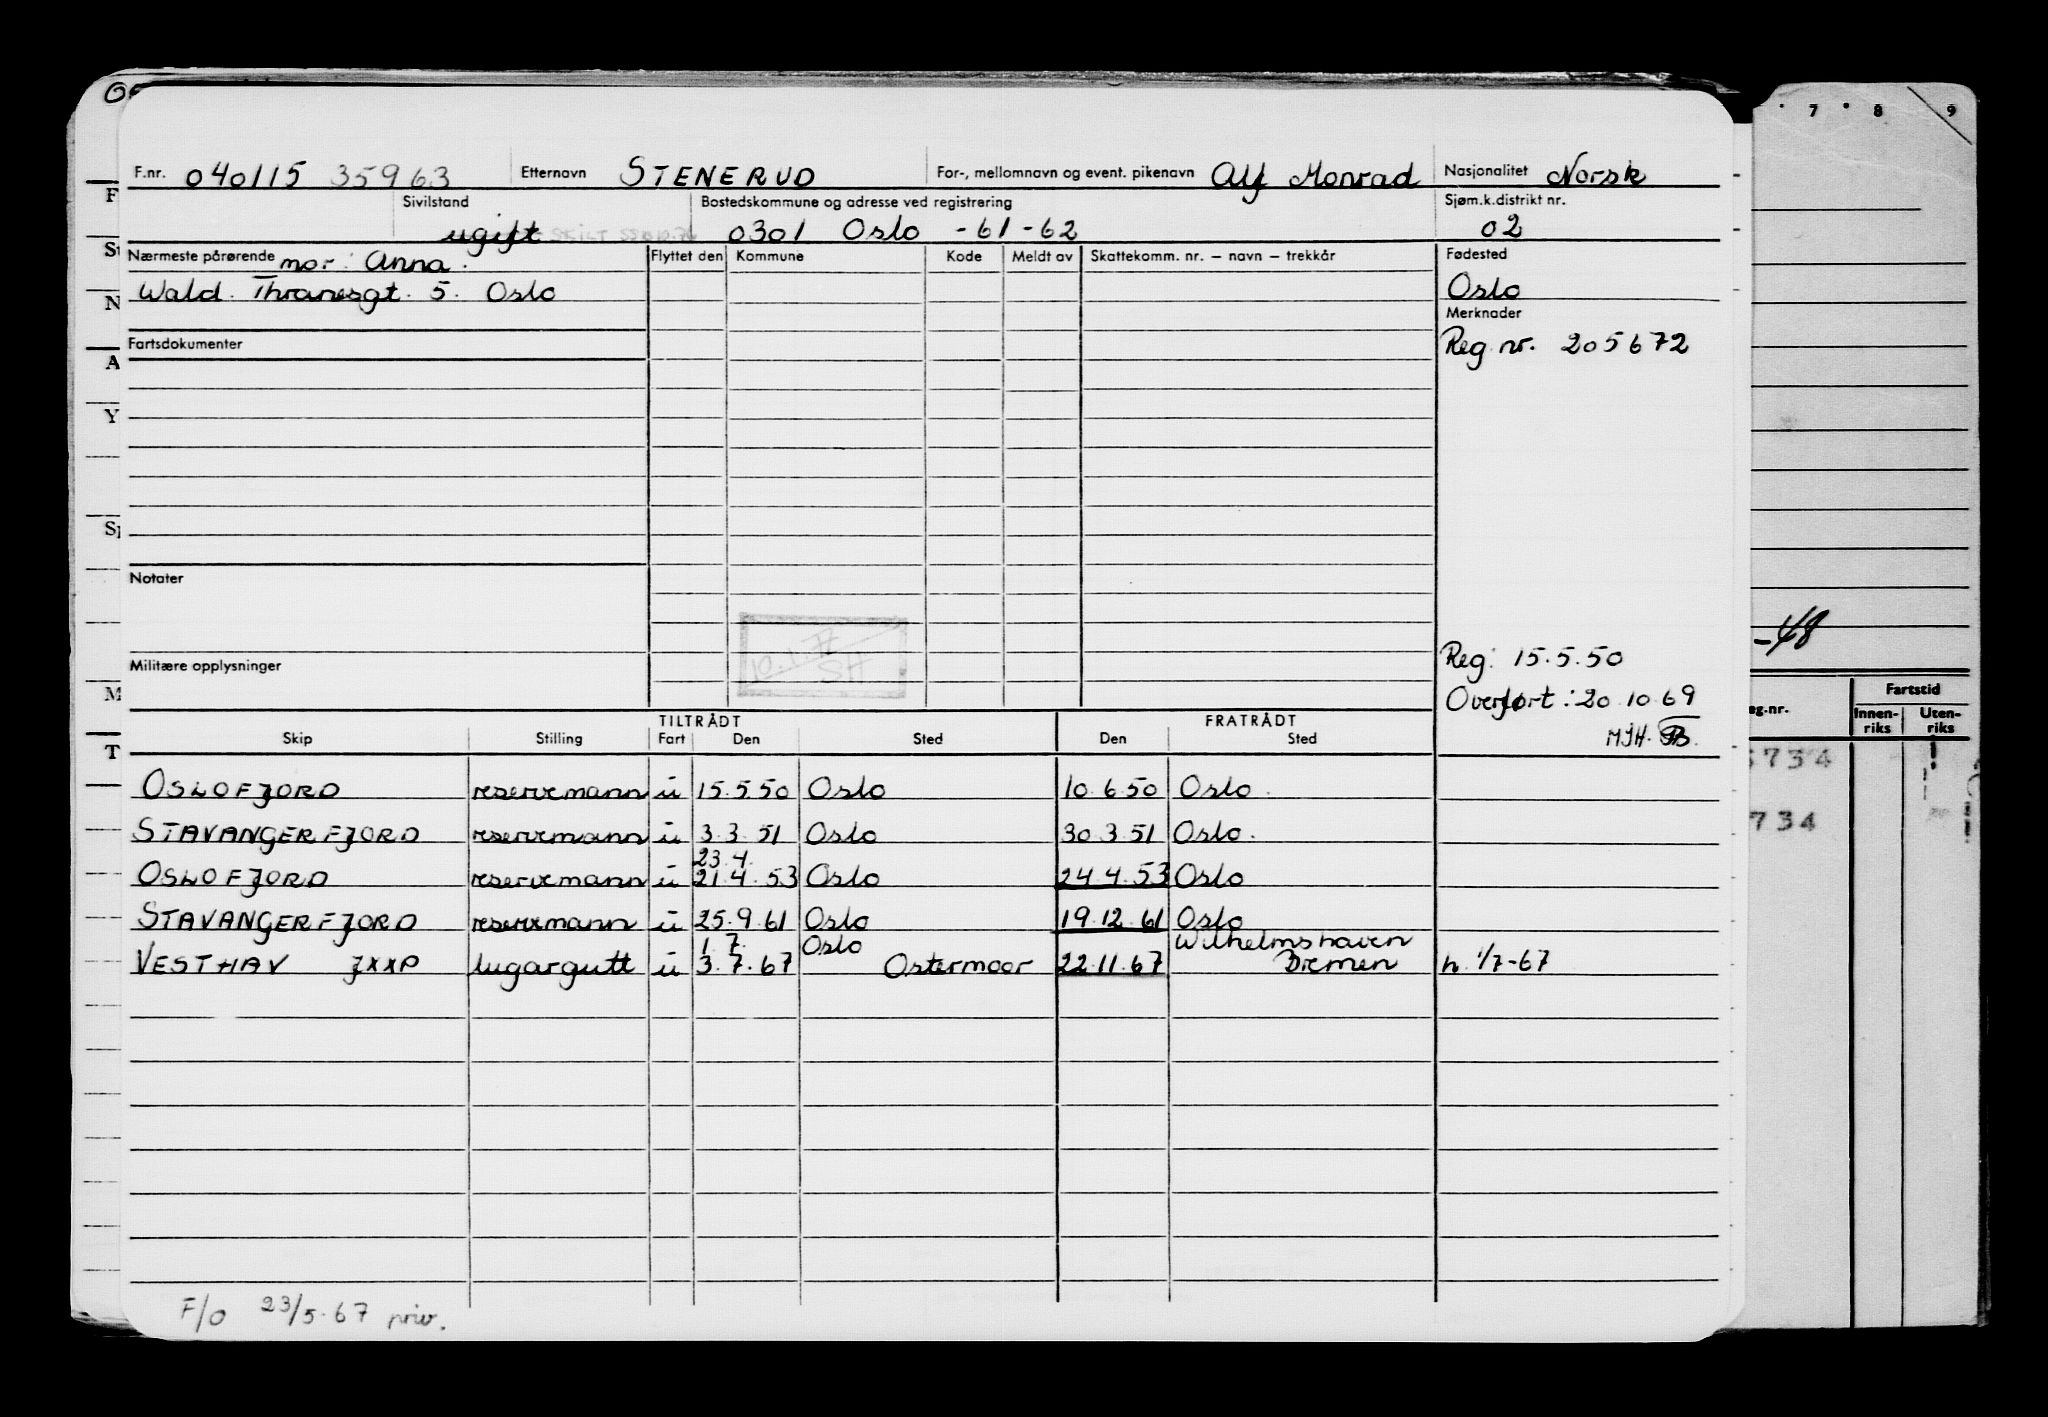 F.nr. 040115 35963 Etternavn STENERUD For-, mellomnavn og event. pikenavn Alf Monrad Nasjonalitet Norsk
Sivilstand Bostedskommune og adresse ved registrering Sjøm.k.distrikt nr.
ugift 0301 Oslo -61-62 02
Nærmeste pårørende mor: Anna. Flyttet den Kommune Kode Meldt av Skattekomm. nr. – navn – trekkår Fødested
Wald. Thranesgt. 5. Oslo Oslo
Merknader
Fartsdokumenter Reg. nr. 205672
Notater
10.1.
SH
Militære opplysninger Reg: 15.5.50
Overført: 20.10.69
MJH.
TILTRÅDT FRATRÅDT
Skip Stilling Fart Den Sted Den Sted
OSLOFJORD reservemann u 15.5.50 Oslo 10.6.50 Oslo.
STAVANGERFJORD reservemann u 3.3.51 Oslo 30.3.51 Oslo.
23.4.
OSLOFJORD reservemann u 21.4.53 Oslo 24.4.53 Oslo
STAVANGERFJORD reservemann u 25.9.61 Oslo 19.12.61 Oslo
1.7. Oslo Wilhelmshaven
VESTHAV JXXP lugargutt u 3.7.67 Ostermoor 22.11.67 Bremen h. 1/7-67
F/O 23/5.67 priv.
7 8 9
-48
eg.nr. Fartstid
Innen-riks Uten-riks
734
734
F
N
A
Y
M
T